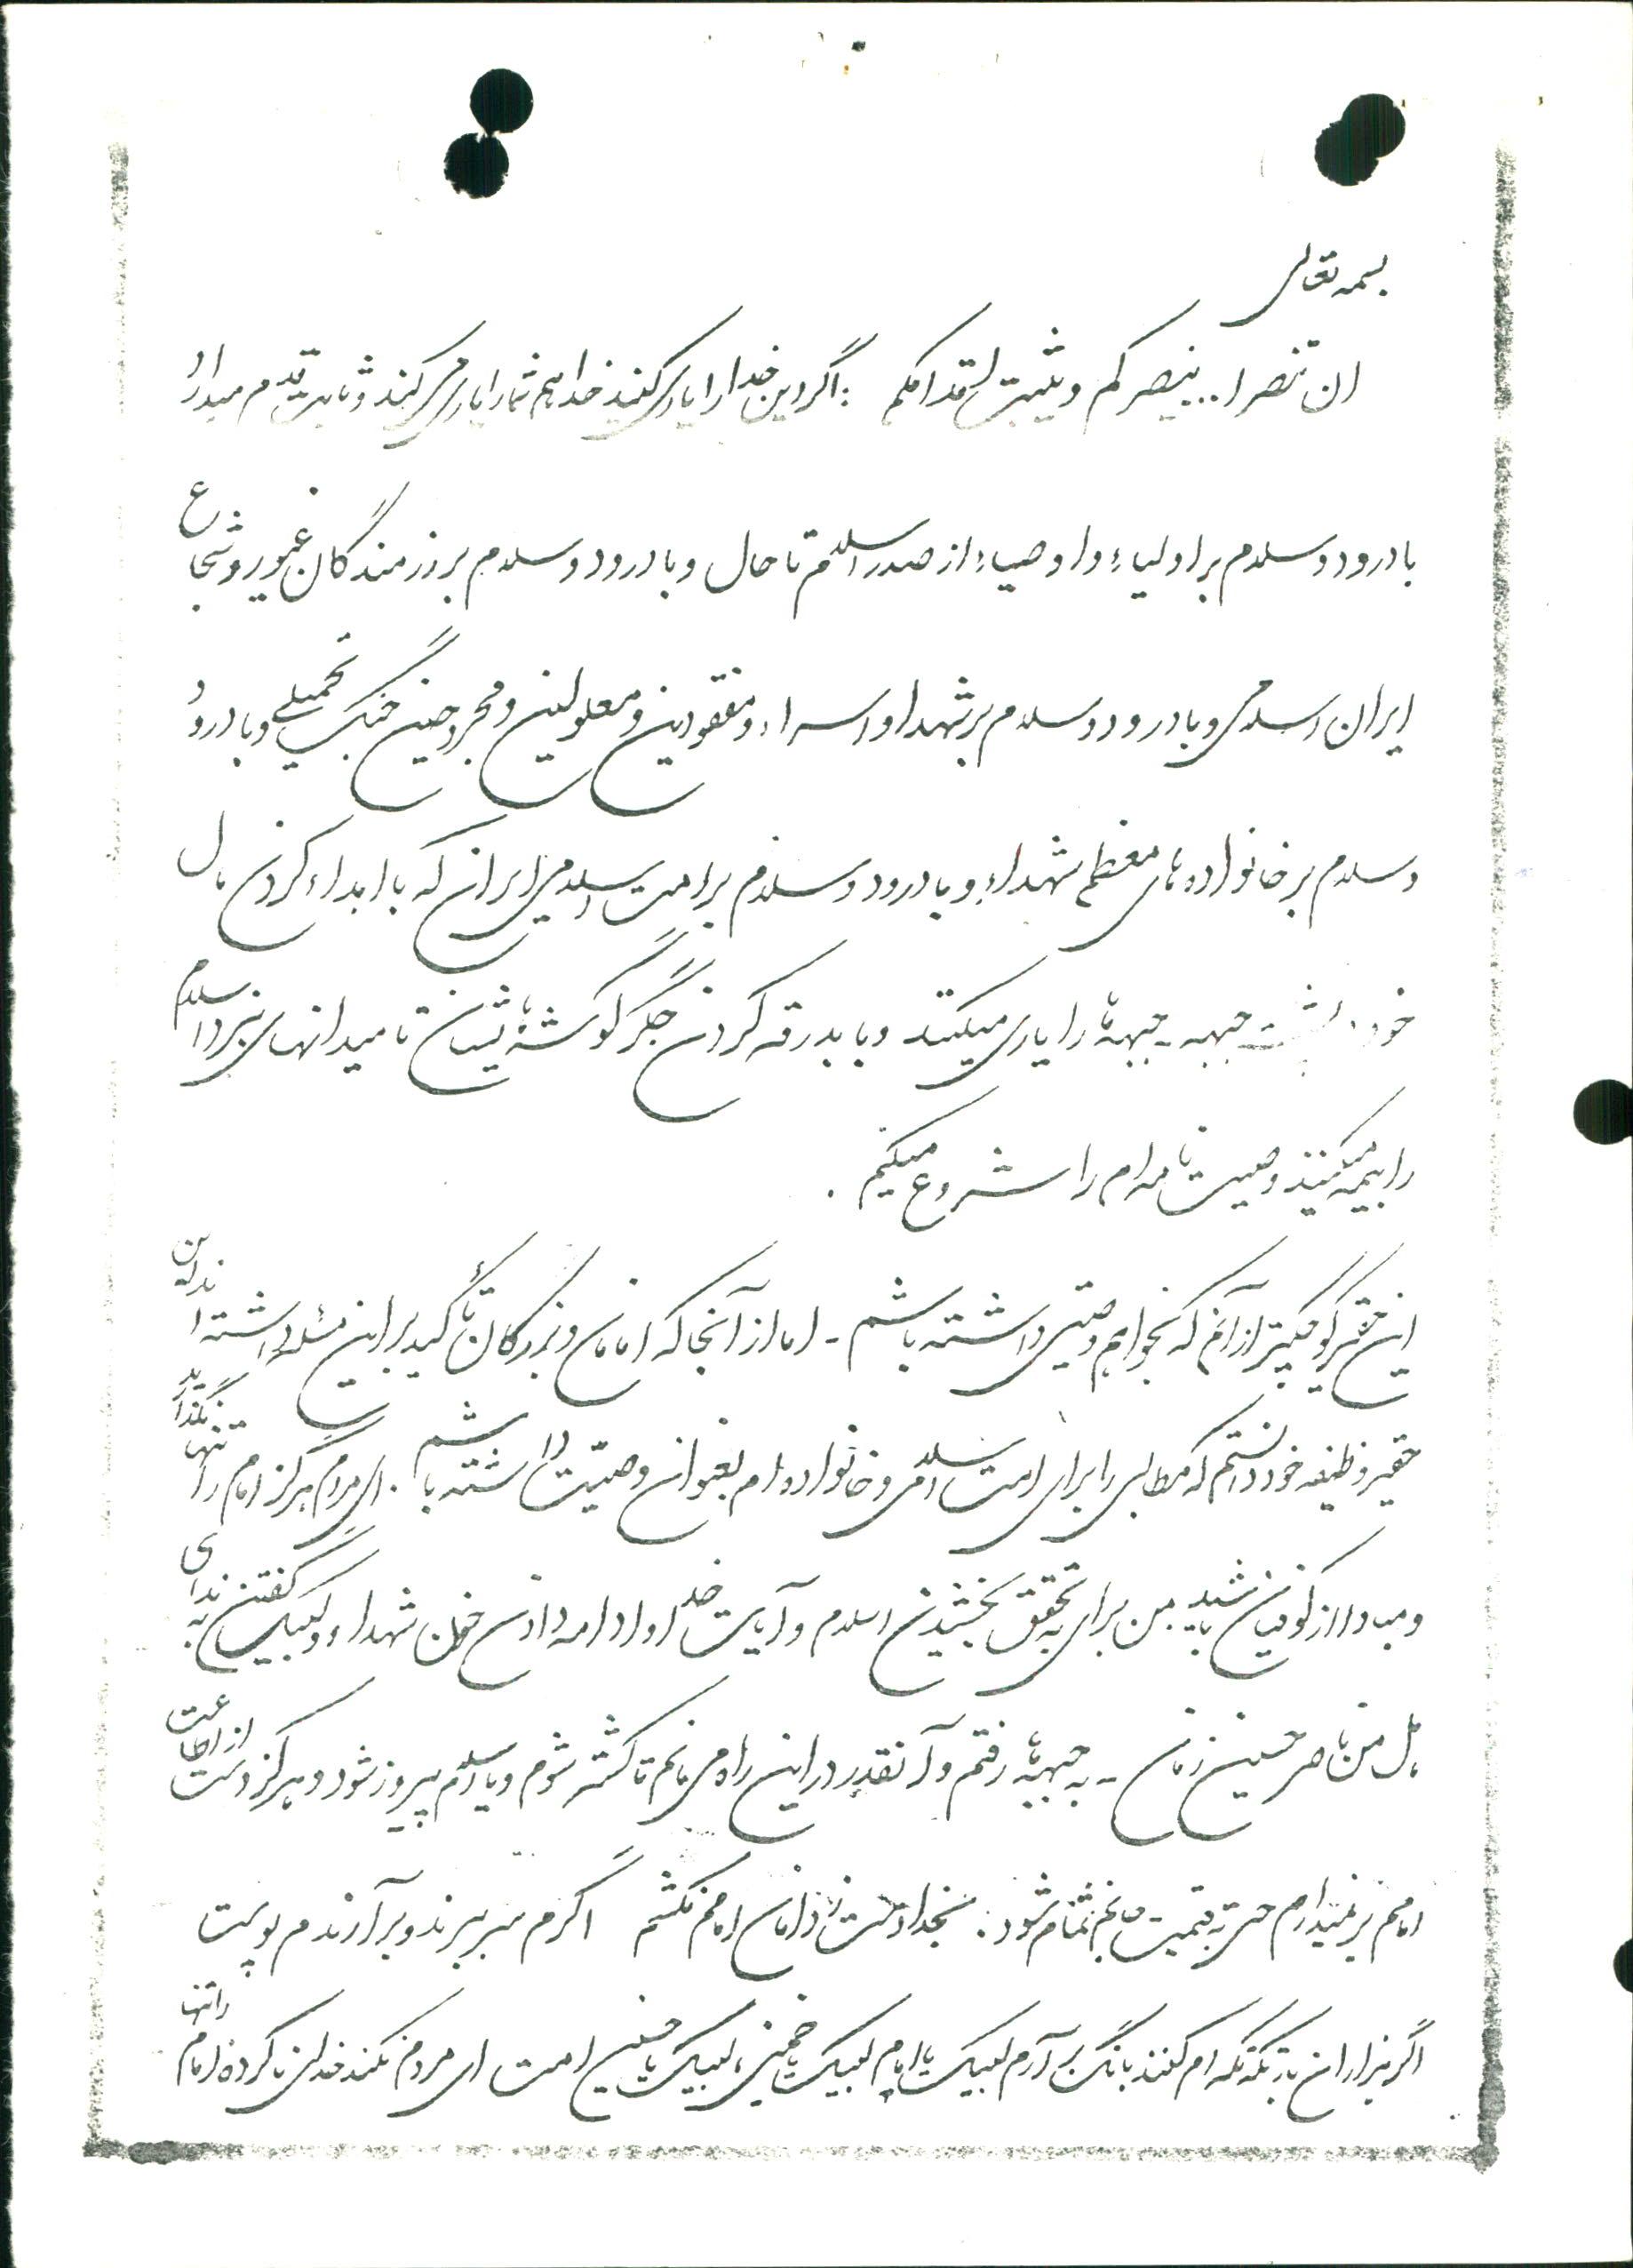 بسمه تعالی
ان تنصر ا... ینصرکم و یثبت اقدامکم : اگر دین خدا را یاری کنید خدا هم شما را یاری می کند و ثابت قدم میدارد
با درود و سلام بر اولیاء و اوصیاء از صدر اسلام تا حال و با درود و سلام بر رزمندگان غیور و شجاع
ایران اسلامی و با درود و سلام بر شهدا و اسراء و مفقودین و معلولین و مجروحین جنگ تحمیلی و با درود
و سلام بر خانواده های معظم شهداء و با درود و سلام بر امت اسلامی ایران که با اهداء کردن مال
خود پشت جبهه - جبهه ها را یاری میکنند و با بدرقه کردن جگر گوشه هایشان تا میدانهای نبرد اسلام
را بیمه میکنند وصیت نامه ام را شروع میکنم .
این حقیر کوچکتر از آنم که بخواهم وصیتی داشته باشم - اما از آنجا که امامان و بزرگان تأکید بر این مسئله داشته اند این
حقیر وظیفه خود دانستم که مطالبی را برای امت اسلامی و خانواده ام بعنوان وصیت داشته باشم . ای مردم هرگز امام را تنها نگذارید
و مبادا از کوفیان باشید من برای به تحقق بخشیدن اسلام و آیات خدا و ادامه دادن خون شهداء و لبیک گفتن به ندای
هل من ناصر حسین زمان - به جبهه ها رفتم و آنقدر در این راه می مانم تا کشته شوم و یا اسلام پیروز شود و هرگز دست از اطاعت
امامم بر نمیدارم حتی به قیمت جانم تمام شود . بخدا دست از دامان امامم نکشم اگرم سر ببرند و برآرندم پوست
اگر هزاران بار تکه تکه ام کنند بانگ بر آرم لبیک یا امام لبیک یا خمینی لبیک یا حسین امت ای مردم نکند خدای ناکرده امام را تنها